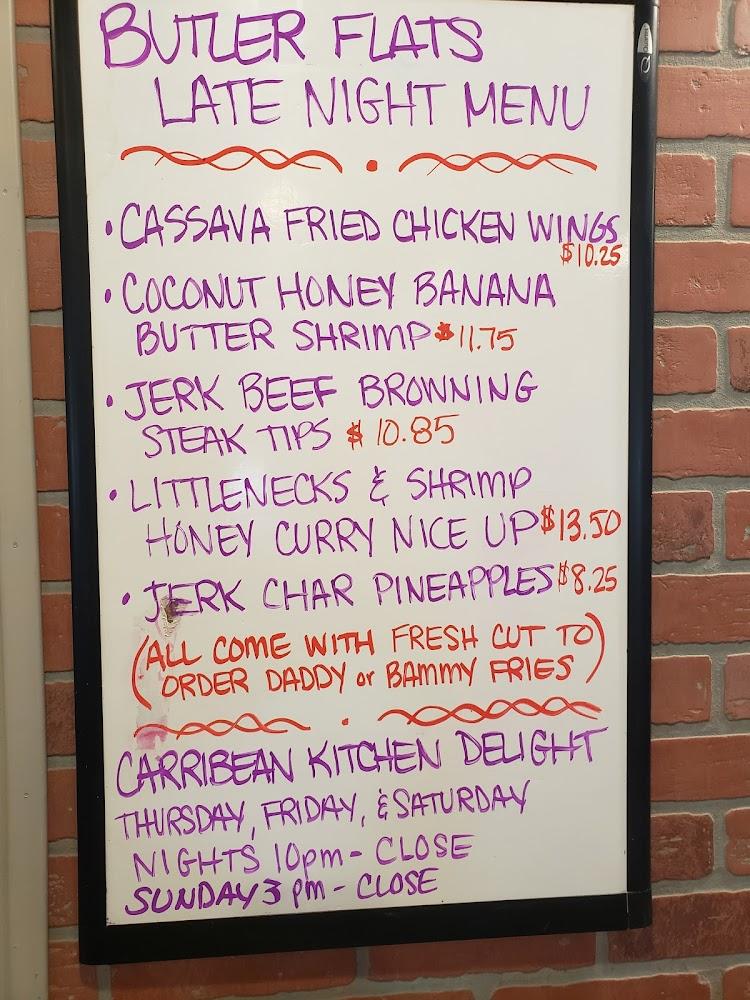 BUTLER FLATS
LATE NIGHT MENU
• CASSAVA FRIED CHICKEN WINGS
$10.25
• COCONUT HONEY BANANA
BUTTER SHRIMP $11.75
• JERK BEEF BROWNING
STEAK TIPS $10.85
• LITTLENECKS & SHRIMP
HONEY CURRY NICE UP $13.50
• JERK CHAR PINEAPPLES $8.25
(ALL COME WITH FRESH CUT TO
ORDER DADDY or BAMMY FRIES)
CARRIBEAN KITCHEN DELIGHT
THURSDAY, FRIDAY, & SATURDAY
NIGHTS 10pm - CLOSE
SUNDAY 3 pm - CLOSE